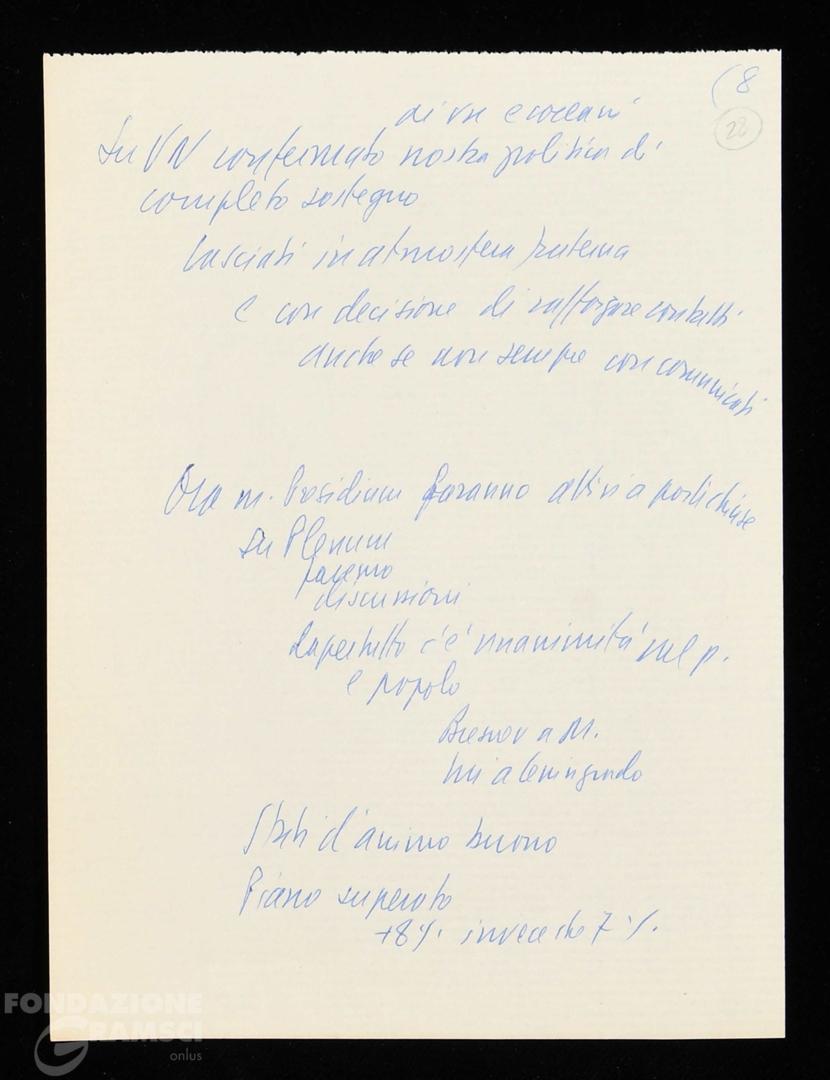 (8
28
di VN e
Su VN confermato nostra politica di
completo sostegno
Lasciati in atmosfera fraterna
e con decisione di rafforzare contatti
anche se non sempre con comunicati
Ora m. Presidium faranno attivi a porte chiuse
su Plenum
faremo
discussioni
Dapertutto c'è unanimità nel p.
e popolo
Bresnov a M.
lui a Leningrado
Stati d'animo buono
Piano superato
+8% invece che 7%.
FONDAZIONE
GRAMSCI
onlus